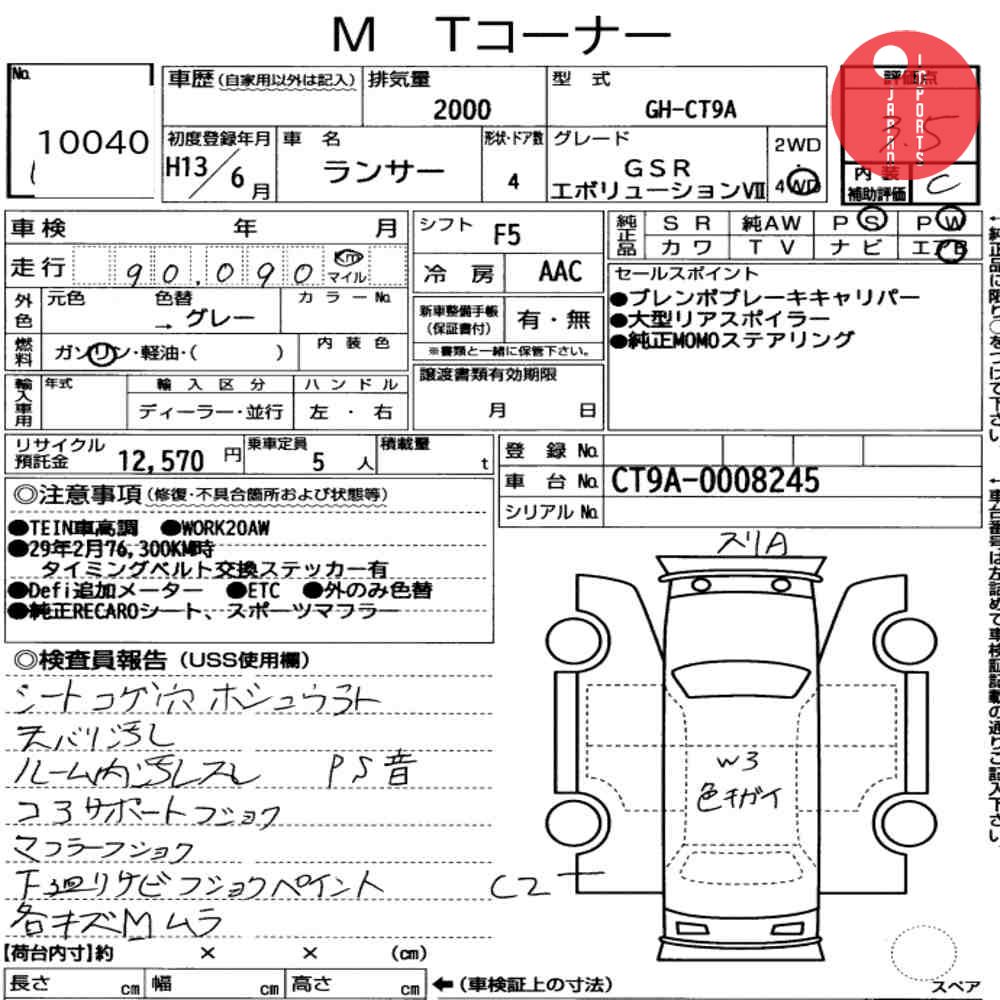 M Tコーナー
No. 10040
車歴 (自家用以外は記入) 排気量 2000 型 式 GH-CT9A
初度登録年月 H13/6月 車 名 ランサー 形状・ドア数 4 グレード GSR エボリューションⅦ 2WD ・ 4WD
評価点 3.5
JAPAN IMPORTS
内 装 補助評価 C
車検 年 月
走行 90,090 Km マイル
外色 元色 色替 → グレー カラーNo.
燃料 ガソリン・軽油・( ) 内装色
輸入車用 年式 輸入区分 ディーラー・並行 ハンドル 左 ・ 右
シフト F5
冷 房 AAC
新車整備手帳 (保証書付) 有・無
※書類と一緒に保管下さい。
譲渡書類有効期限 月 日
純正品 SR 純AW PS PW
カワ TV ナビ エアB
セールスポイント
●ブレンボブレーキキャリパー
●大型リアスポイラー
●純正MOMOステアリング
リサイクル預託金 12,570 円 乗車定員 5 人 積載量 t
登 録 No.
車 台 No. CT9A-0008245
シリアル No.
◎注意事項 (修復・不具合箇所および状態等)
●TEIN車高調 ●WORK20AW
●29年2月76,300KM時
タイミングベルト交換ステッカー有
●Defi追加メーター ●ETC ●外のみ色替
●純正RECAROシート、スポーツマフラー
◎検査員報告 (USS使用欄)
シートコゲ穴 ホシュウラト
天バリ汚し
ルーム内汚レスレ PS音
コアサポートフショク
マフラーフショク
下廻りサビフショクペイント
各キズMムラ
スリA
W3
色チガイ
C2
【荷台内寸】約 × × (cm)
長さ cm 幅 cm 高さ cm ←(車検証上の寸法)
スペア
↑純正品に限り○をつけて下さい。
↑車台番号は左詰めで車検証記載の通りご記入下さい。